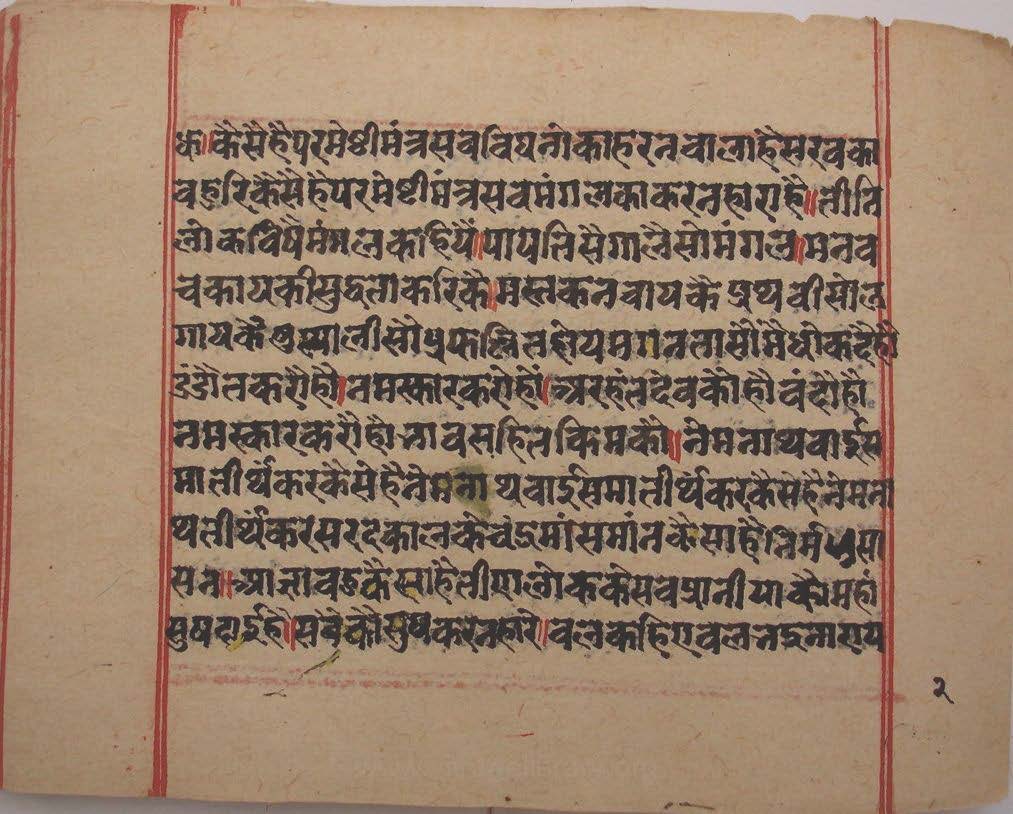 क॥कैसैहैपरमेष्टीमंत्रसवविघनोकाहरनवालाहैसरवका
वहुरिकैसैहैपरमेष्टीमंत्रसवमंगलकाकरनहाराहै॥तीनि
लोकविषैमंगलकहियै॥पापतिसैगालैसोमंगल॥मनव
चकायकीसुद्धताकरिकै॥मस्तकनवायकैप्रथवीसोल
गायकैषुस्यालीसौप्रफुलितहोयमगनतासौंमैधोकदेहौ
डंडौतकरौहौ।नमस्कारकरोहों।अरहंतदेवकौहौवंदोहौ
नमस्कारकरौहौभावसहितकिमकौ॥नेमनाथवाईस
मातीर्थंकरकैसेहैनेमनाथवाईसमातीर्थंकरकैसेहैनेमना
थतीर्थंकरसरदकालकेचंद्रमांसमांनकैसाहैजिनमधुसा
सन॥भ्यानावडकैसाहैतीयालोककेसवप्रानीयाकौमहां
सुषदाईहै॥सवकौसुषकरनहारे॥वलकहिएवलभद्रनाराय
२